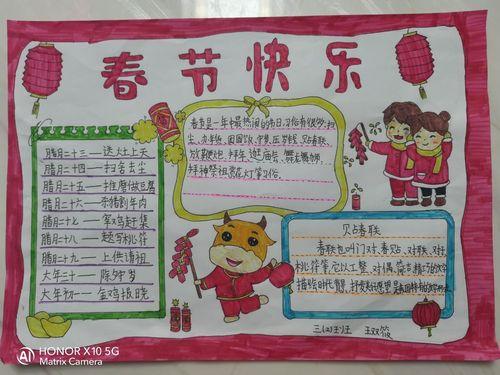 春节快乐
春节是一年中最热闹的节日,习俗有很多:扫
尘、办年货、团圆饭、守岁、压岁钱、贴春联、
放鞭炮、拜年、逛庙会、舞龙舞狮、
拜神祭祖赏花灯等习俗。
腊月二十三——送灶上天
腊月二十四——扫舍去尘
腊月二十五——推磨做豆腐
腊月二十六——杀猪割年肉
腊月二十七——宰鸡赶集
腊月二十八——题写桃符
腊月二十九——上供请祖
大年三十——除夕守岁
大年初一——金鸡报晓
贴春联
春联也叫门对、春贴、对联、对子
桃符等,它以工整、对偶、简洁、精巧的文字
描绘时代背景,抒发美好愿望
三(2)班
HONOR X10 5G
Matrix Camera
AI